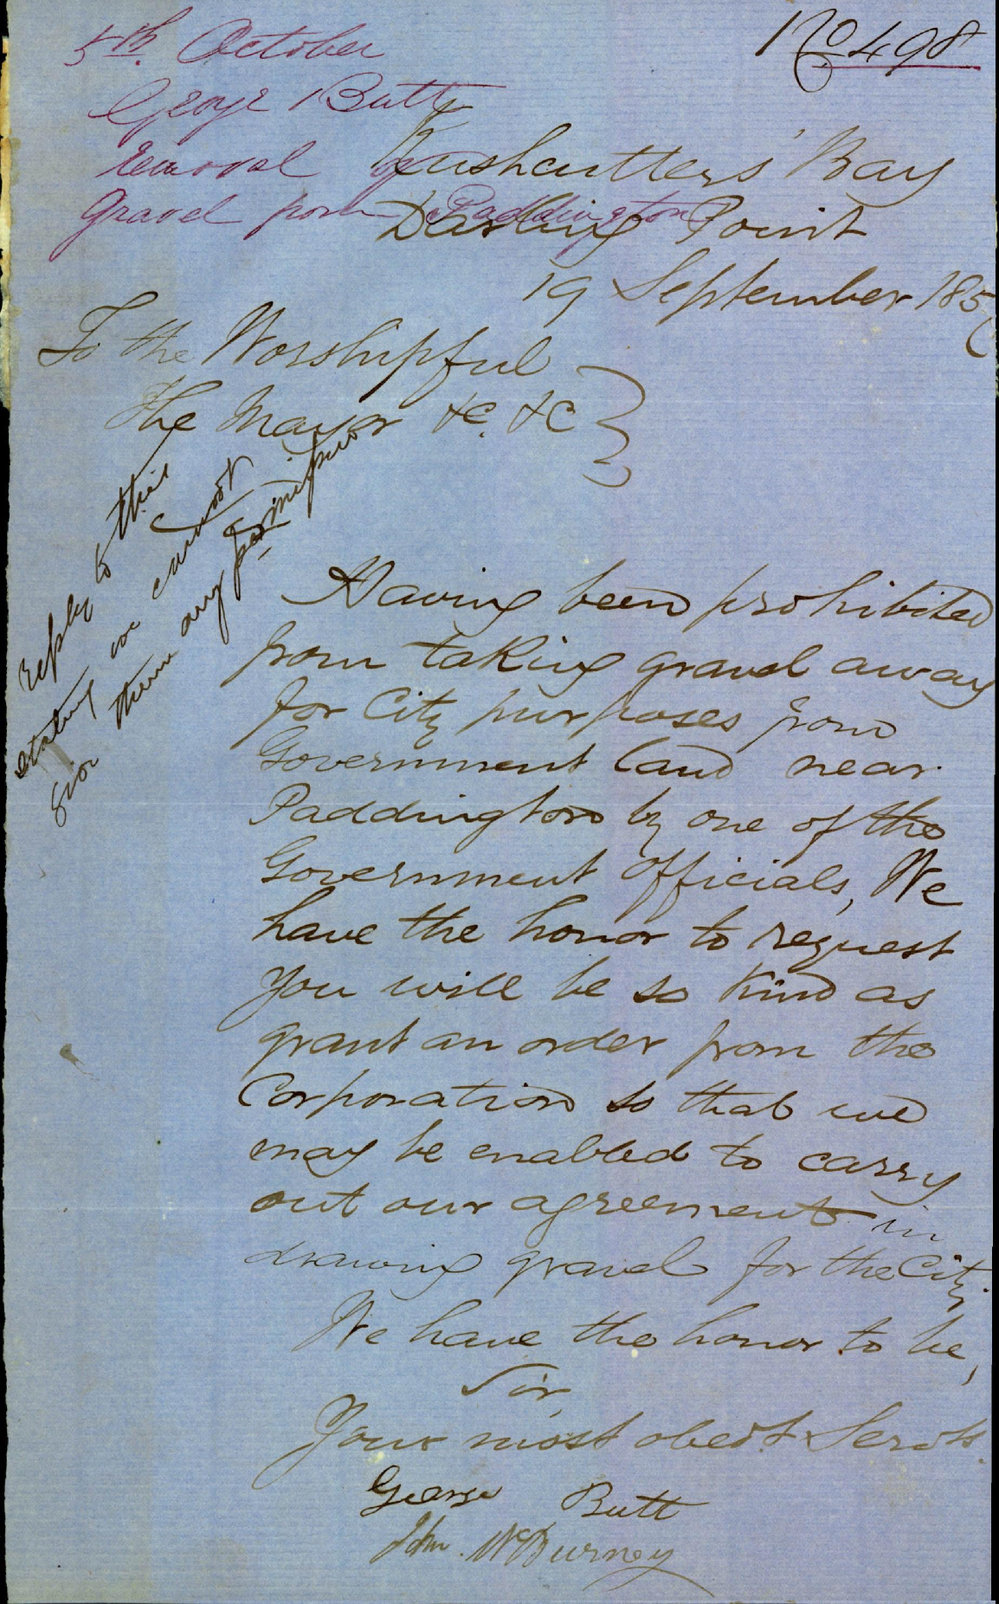 No 498
5th. October
George Butt
removal of
Gravel from Paddington
Rushcutters' Bay
Darling Point
19 September 185
To the Worshipful
The Mayor &c. &c
reply to this
stating we cannot
give them any permission
Having been prohibited
from taking gravel away
for City purposes from
Government land near
Paddington by one of the
Government Officials, We
have the honor to request
you will be so kind as
grant an order from the
Corporation so that we
may be enabled to carry
out our agreement in
drawing gravel for the City.
We have the honor to be,
Sir,
Your most obedt. Servts.
George Butt
John McBurney